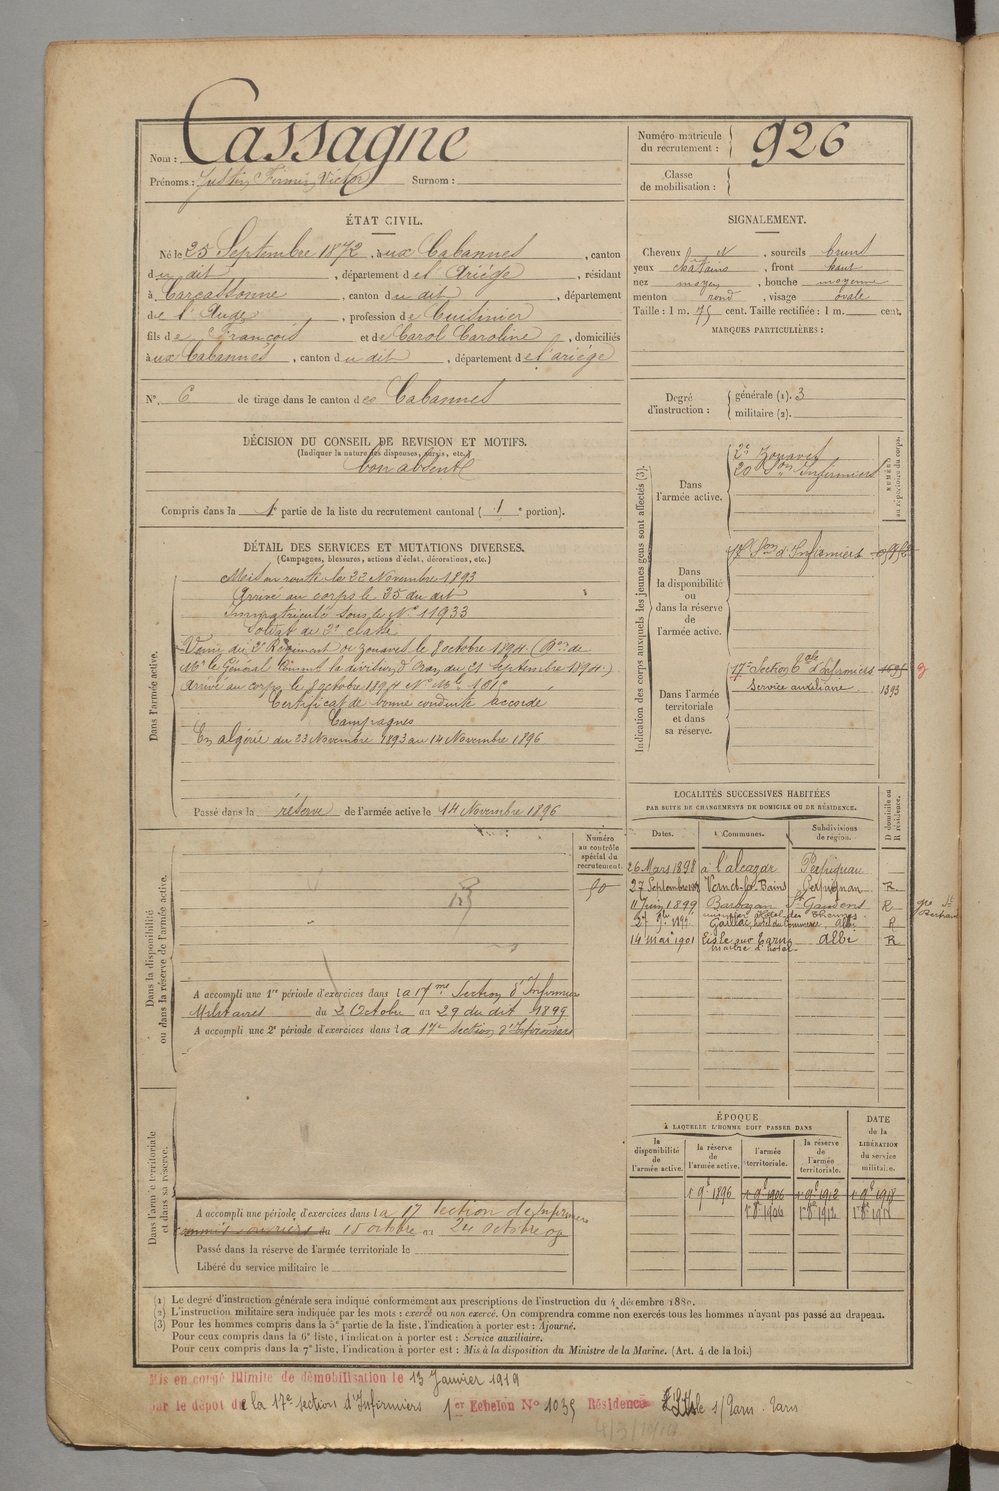 Nom : Cassagne
Prénoms : Justin Firmin Victor Surnom :
Numéro matricule du recrutement : 926
Classe de mobilisation :
ÉTAT CIVIL.
Né le 25 Septembre 1872, à ux Cabannes, canton
du dit, département de l'Ariège, résidant
à Carcassonne, canton du dit, département
de l'Aude, profession de Cuisinier
fils de François et de Carol Caroline, domiciliés
à ux Cabannes, canton du dit, département de l'ariége
N° 6 de tirage dans le canton des Cabannes
DÉCISION DU CONSEIL DE REVISION ET MOTIFS.
(Indiquer la nature des dispenses, sursis, etc.)
bon absent
Compris dans la 1e partie de la liste du recrutement cantonal (1e portion).
SIGNALEMENT.
Cheveux et, sourcils bruns
yeux châtains, front haut
nez moyen, bouche moyenne
menton rond, visage ovale
Taille : 1 m. 75 cent. Taille rectifiée : 1 m. cent.
MARQUES PARTICULIÈRES :
Degré d'instruction : générale (1). 3
militaire (2).
DÉTAIL DES SERVICES ET MUTATIONS DIVERSES.
(Campagnes, blessures, actions d'éclat, décorations, etc.)
Dans l'armée active.
Mis en route le 22 Novembre 1893
Arrivé au corps le 25 du dit
Immatriculé sous le N° 11933
Soldat de 2e classe
Venu du 2e Régiment de Zouaves le 8 octobre 1894 (On de
Mr le Général Commt la division d'Oran du 21 Septembre 1894)
Arrivé au corps le 8 octobre 1894 N° Mle
Certificat de bonne conduite accordé
Campagnes
En algérie du 23 Novembre 1893 au 14 Novembre 1896
Passé dans la réserve de l'armée active le 14 Novembre 1896
Indication des corps auxquels les jeunes gens sont affectés (3).
NUMÉRO au répertoire du corps.
Dans l'armée active.
2e Zouaves
20 Son Infirmiers
Dans la disponibilité ou dans la réserve de l'armée active.
Son d'Infirmiers
Dans l'armée territoriale et dans sa réserve.
17e Section d'Infirmiers
Service auxiliaire 1393
LOCALITÉS SUCCESSIVES HABITÉES
PAR SUITE DE CHANGEMENTS DE DOMICILE OU DE RÉSIDENCE.
Dates. Communes. Subdivisions de région. D domicile ou R résidence.
26 Mars 1898 à l'alcazar Perpignan
27 Septembre Vernet-les-Bains Perpignan R
11 Juin 1899 Barbazan St Gaudens R
Hôtel des Thermes
Gaillac, hôtel du Commerce albi R
14 mai 1901 Lisle sur Tarn Albi R
maître d'hôtel
Dans la disponibilité ou dans la réserve de l'armée active.
Numéro au contrôle spécial du recrutement.
A accompli une 1re période d'exercices dans la 17me Section d'Infirmiers
Militaires du 2 Octobre au 29 du dit 1899
A accompli une 2e période d'exercices dans la 17e Section d'Infirmiers
Dans l'armée territoriale et dans sa réserve.
A accompli une période d'exercices dans la 17 Section de Infirmiers
commis ouvriers du 15 octobre au octobre 07
Passé dans la réserve de l'armée territoriale le
Libéré du service militaire le
ÉPOQUE
À LAQUELLE L'HOMME DOIT PASSER DANS
DATE de la LIBÉRATION du service militaire.
la disponibilité de l'armée active. la réserve de l'armée active. l'armée territoriale. la réserve de l'armée territoriale.
1 9e 1896 1 9e 1906 1 9e 1912 1 9e 1918
1906 1912
(1) Le degré d'instruction générale sera indiqué conformément aux prescriptions de l'instruction du 4 décembre 1889.
(2) L'instruction militaire sera indiquée par les mots : exercé ou non exercé. On comprendra comme non exercés tous les hommes n'ayant pas passé au drapeau.
(3) Pour les hommes compris dans la 5e partie de la liste, l'indication à porter est : Ajourné.
Pour ceux compris dans la 6e liste, l'indication à porter est : Service auxiliaire.
Pour ceux compris dans la 7e liste, l'indication à porter est : Mis à la disposition du Ministre de la Marine. (Art. 4 de la loi.)
Mis en congé illimité de démobilisation le 13 Janvier 1919
par le dépôt de la 17e section d'Infirmiers 1er Echelon N° 1035 Résidence L'Isle s/Tarn. Tarn